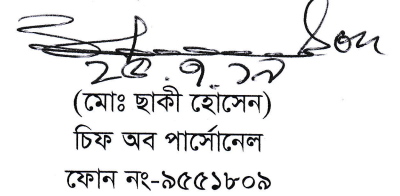 (মোঃ ছাকী হোসেন)
চিফ অব পার্সোনেল
ফোন নং-৯৫৫১৮০৯